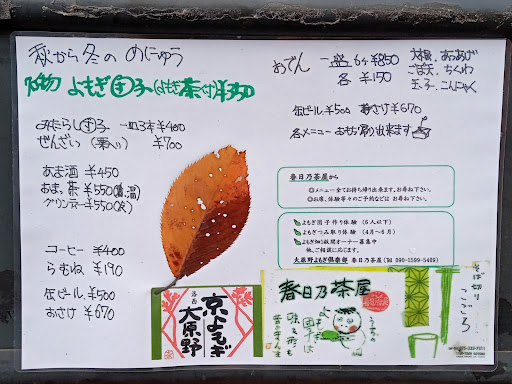 秋から冬の めにゅう
名物 よもぎ団子(よもぎ茶付)¥350
みたらし団子 一皿3本¥400
ぜんざい(栗入) ¥700
あま酒 ¥450
あまっ茶 ¥550(温)
グリンティー¥550(冷)
コーヒー ¥400
らむね ¥190
缶ビール ¥500
おさけ ¥670
おでん 一皿 6ヶ¥850
各 ¥150
大根、あつあげ
ごぼ天、ちくわ
玉子、こんにゃく
缶ビール¥500 おさけ¥670
各メニュー おもち帰り出来ます
春日乃茶屋から
◎メニュー全てお持ち帰り出来ます。お尋ね下さい。
◎お席、体験等々のご予約などは お尋ね下さい。
よもぎ団子作り体験 (6人以下)
よもぎつみ取り体験 (4月~6月)
よもぎ畑1畝間オーナー募集中
他、ご相談に応じます。
大原野よもぎ倶楽部 春日乃茶屋(Tel 090-1599-5409)
京よもぎ
洛西
大原野
春日乃茶屋
よもぎ
団子は
味も形も
そば切り
こごろ